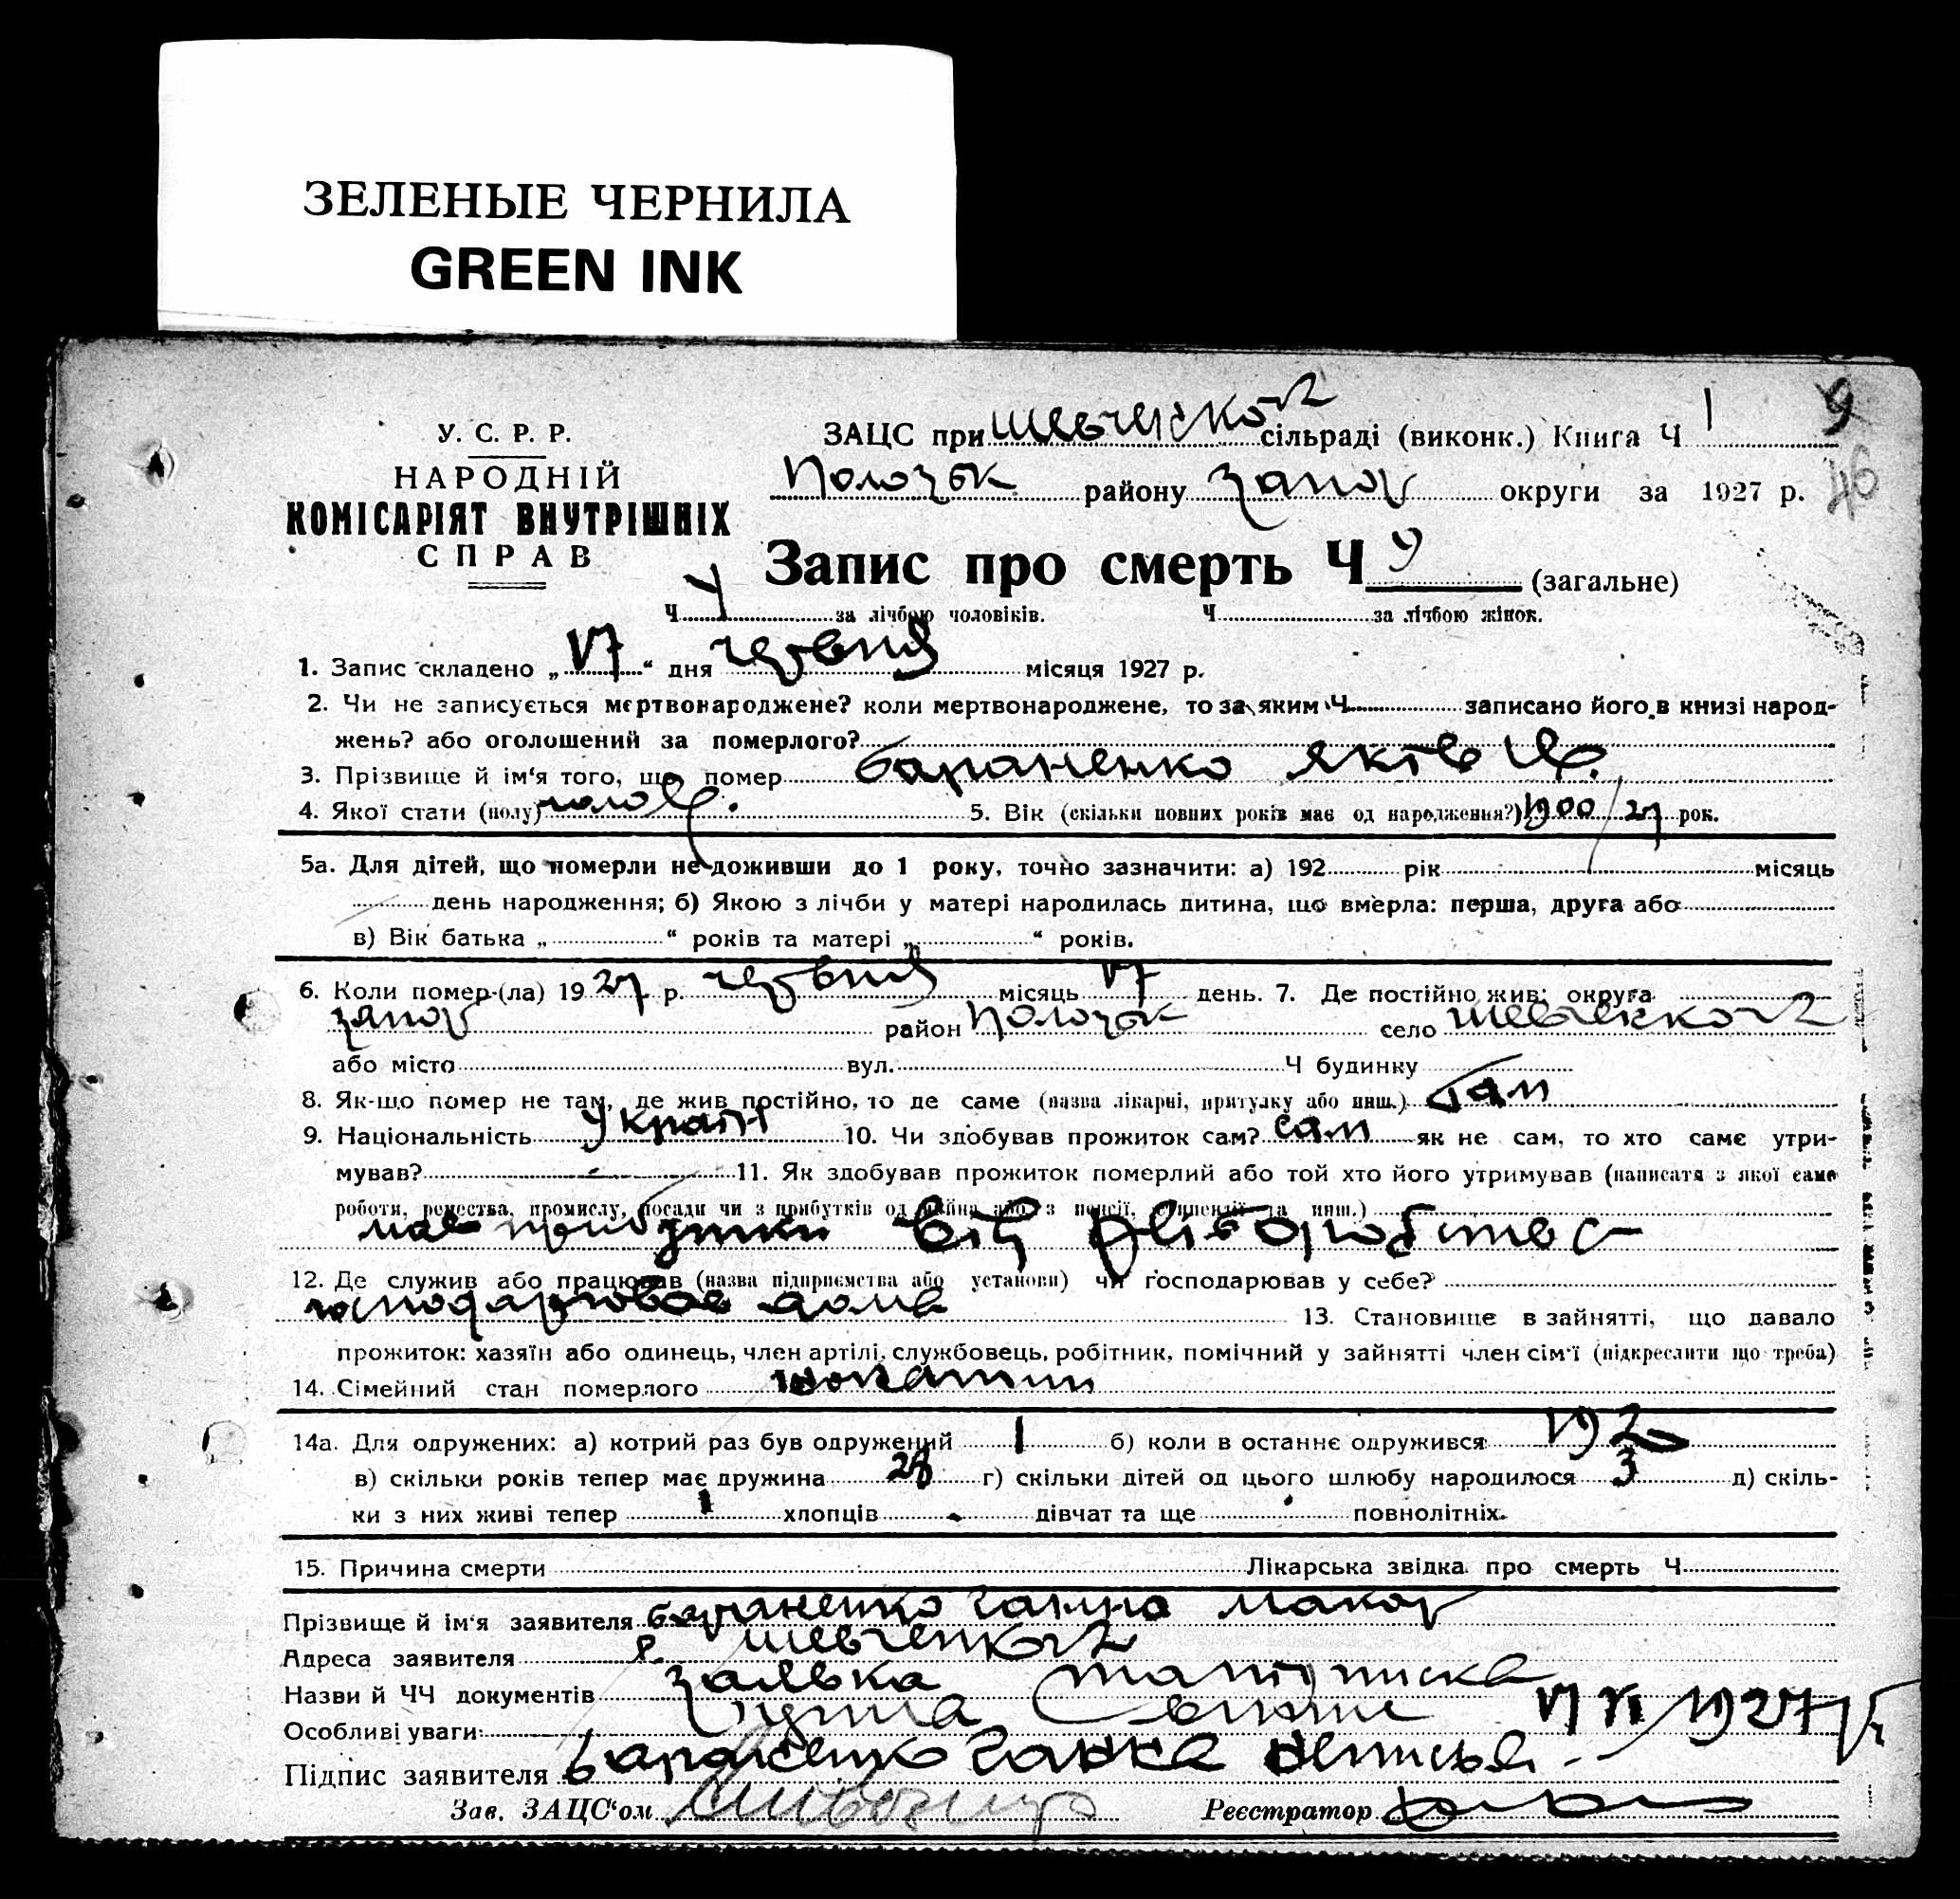 ЗЕЛЕНЫЕ ЧЕРНИЛА
GREEN INK
9
46
У. С. Р. Р.
НАРОДНІЙ
КОМІСАРІЯТ ВНУТРІШНІХ
СПРАВ
ЗАЦС при сільраді (виконк.) Книга Ч 1
району Запор округи за 1927 р.
Запис про смерть Ч 9 (загальне)
Ч за лічбою чоловіків. Ч за лічбою жінок.
1. Запис складено „17“ дня червня місяця 1927 р.
2. Чи не записується мертвонароджене? коли мертвонароджене, то за яким Ч записано його в книзі народ-
жень? або оголошений за померлого?
3. Прізвище й ім'я того, що помер Бараненко Яків
4. Якої стати (полу) 5. Вік (скільки повних років має од народження?) 1900/27 рок.
5а. Для дітей, що померли не доживши до 1 року, точно зазначити: а) 192 рік місяць
день народження; б) Якою з лічби у матері народилась дитина, що вмерла: перша, друга або
в) Вік батька „ “ років та матері „ “ років.
6. Коли помер (ла) 1927 р. червня місяць 17 день. 7. Де постійно жив: округа
Запор район село
або місто вул. Ч будинку
8. Як-що помер не там, де жив постійно, то де саме (назва лікарні, притулку або инш.) там
9. Національність Украін 10. Чи здобував прожиток сам? сам як не сам, то хто саме утри-
мував? - 11. Як здобував прожиток померлий або той хто його утримував (написати з якої саме
роботи, ремества, промислу, посади чи з прибутків од майна або з пенсії, стипендії та инш.)
мав прибутки від хліборобства
12. Де служив або працював (назва підприємства або установи) чи господарював у себе?
господарював дома 13. Становище в зайнятті, що давало
прожиток: хазяїн або одинець, член артілі, службовець, робітник, помічний у зайнятті член сім'ї (підкреслити що треба)
14. Сімейний стан померлого жонатий
14а. Для одружених: а) котрий раз був одружений 1 б) коли в останнє одружився 1920
в) скільки років тепер має дружина 28 г) скільки дітей од цього шлюбу народилося 3 д) скіль-
ки з них живі тепер 1 хлопців - дівчат та ще повнолітніх.
15. Причина смерти Лікарська звідка про смерть Ч
Прізвище й ім'я заявителя Бараненко Ганна Макар
Адреса заявителя с.
Назви й ЧЧ документів
Особливі уваги: 1927 р.
Підпис заявителя Бараненко Ганна
Зав. ЗАЦС'ом Реєстратор